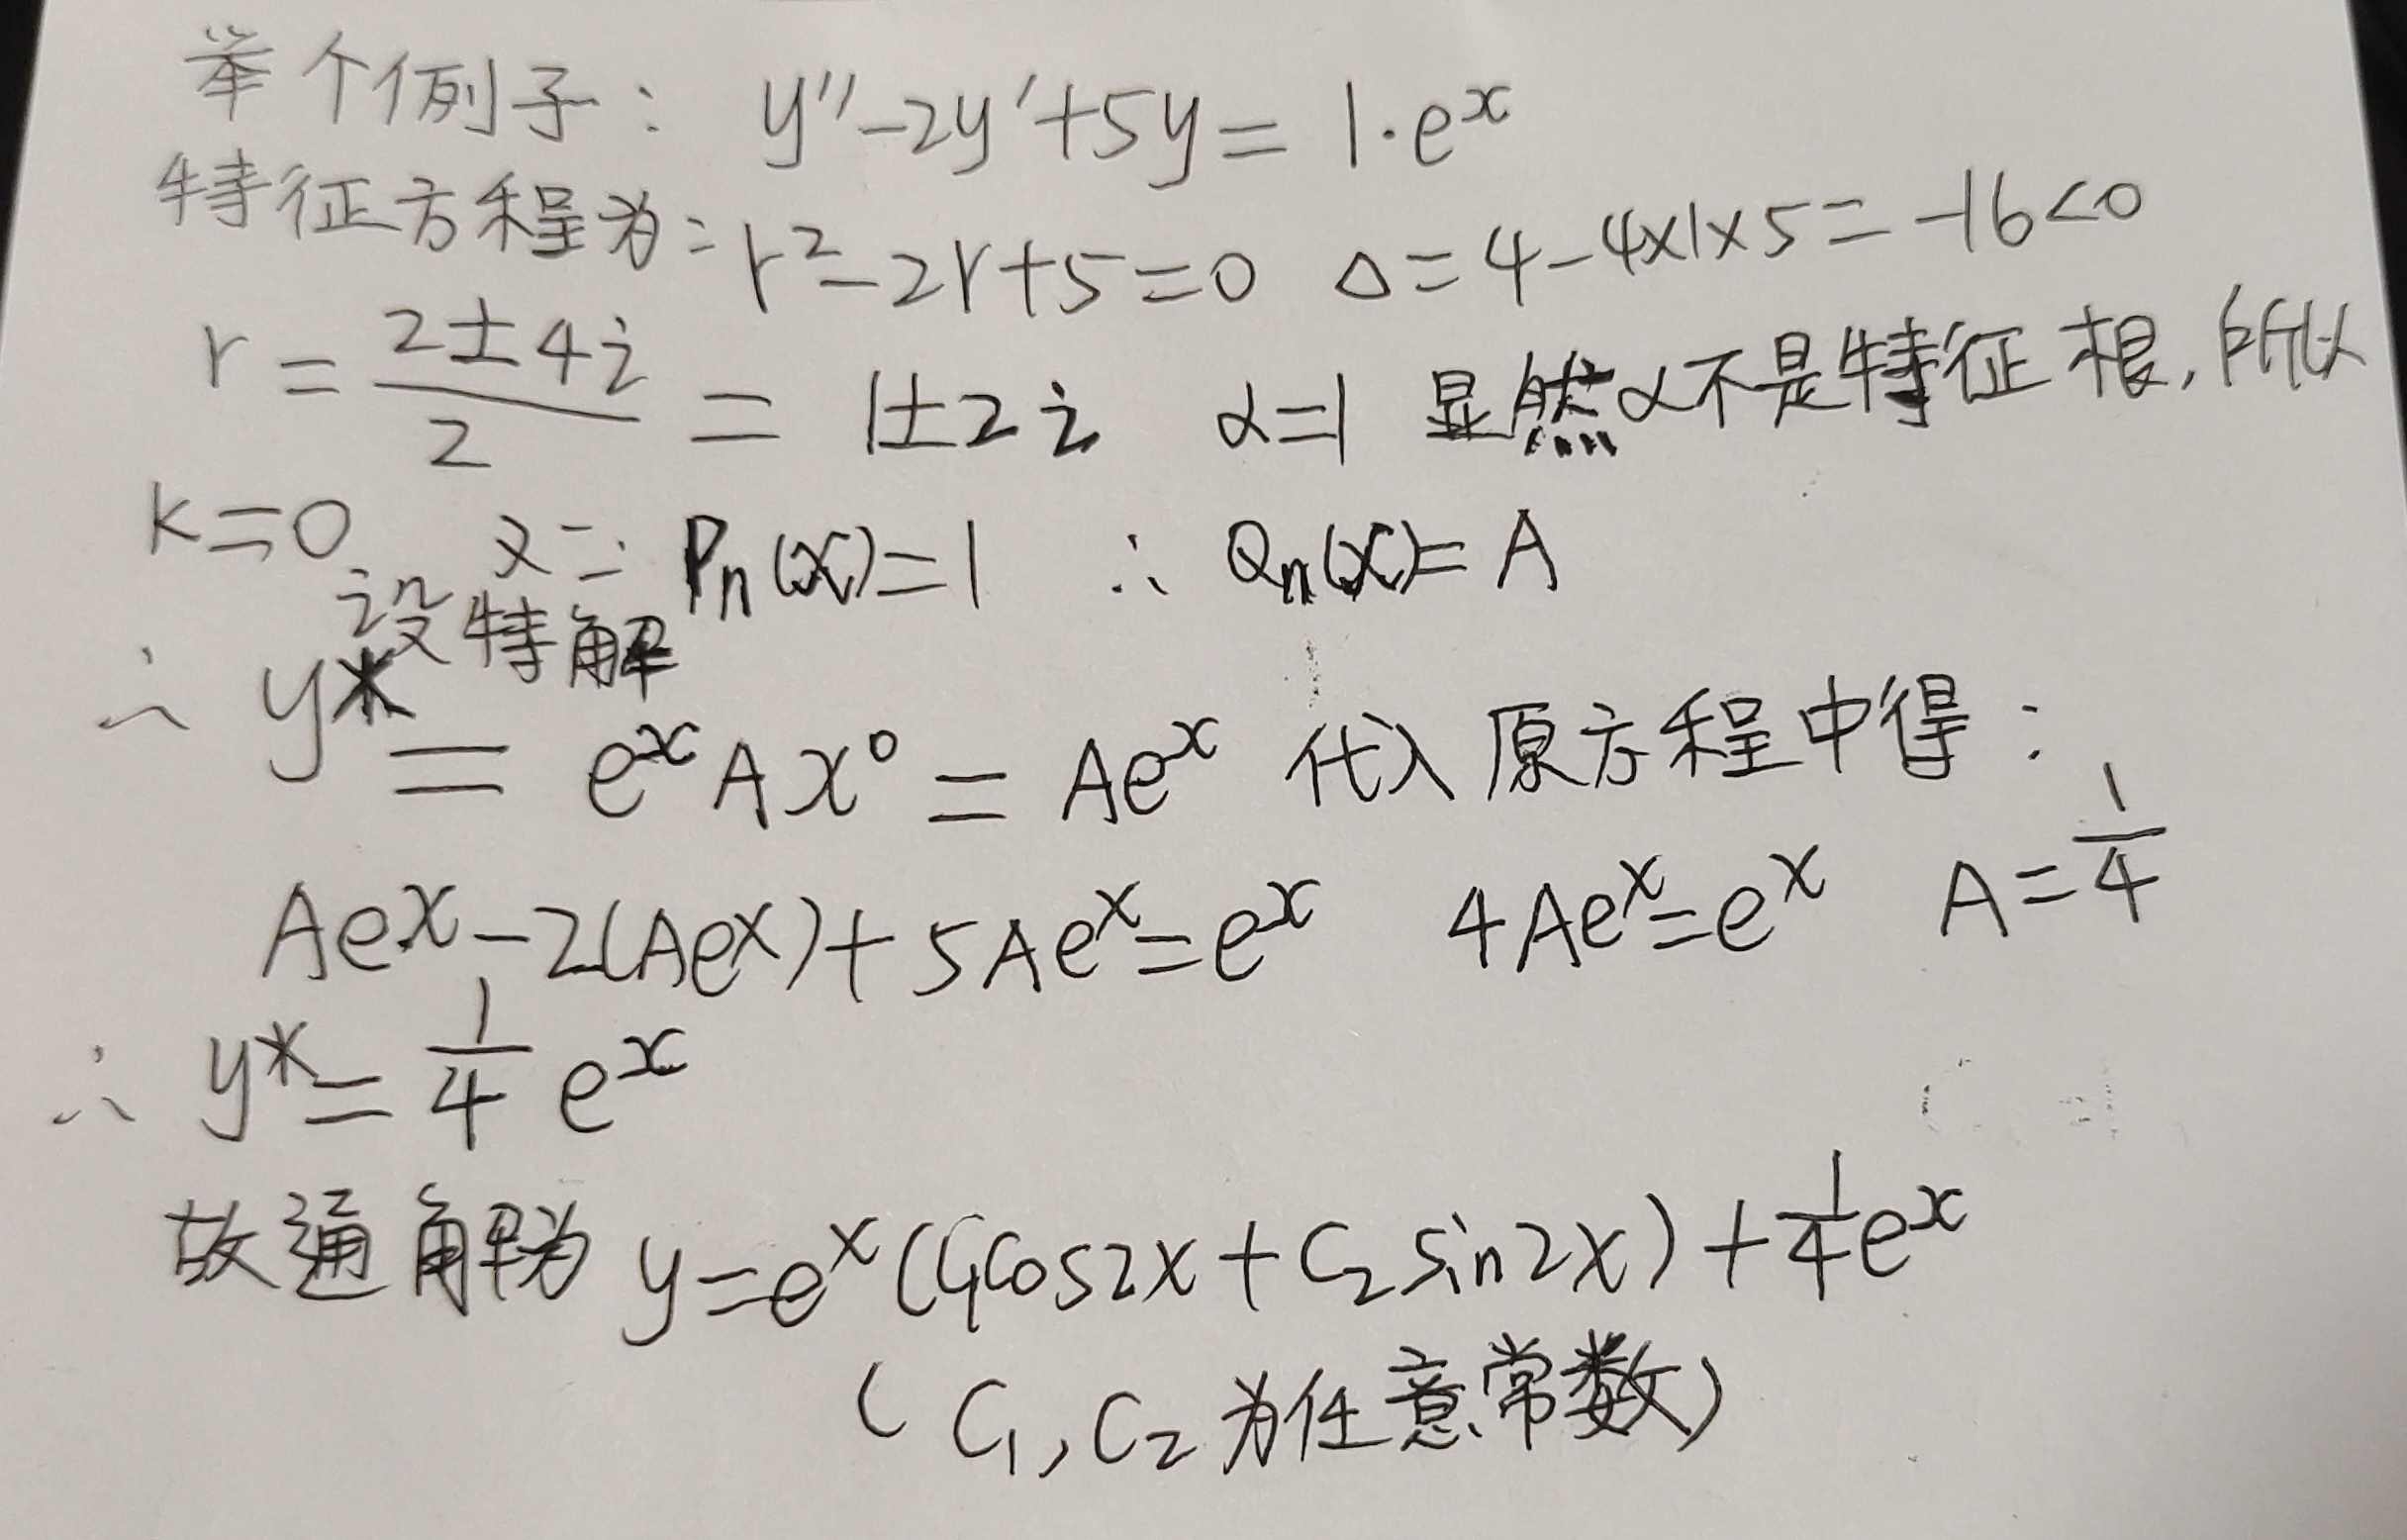 举个例子: y''-2y'+5y=1·eˣ
特征方程为: r²-2r+5=0 Δ=4-4×1×5=-16<0
r=(2±4i)/2=1±2i α=1 显然α不是特征根,所以
k=0 又∵ Pₙ(x)=1 ∴ Qₙ(x)=A
∴ 设特解 y*=eˣAx⁰=Aeˣ 代入原方程中得:
Aeˣ-2(Aeˣ)+5Aeˣ=eˣ 4Aeˣ=eˣ A=1/4
∴ y*=1/4 eˣ
故通解为 y=eˣ(C₁cos2x+C₂sin2x)+1/4eˣ
(C₁,C₂为任意常数)